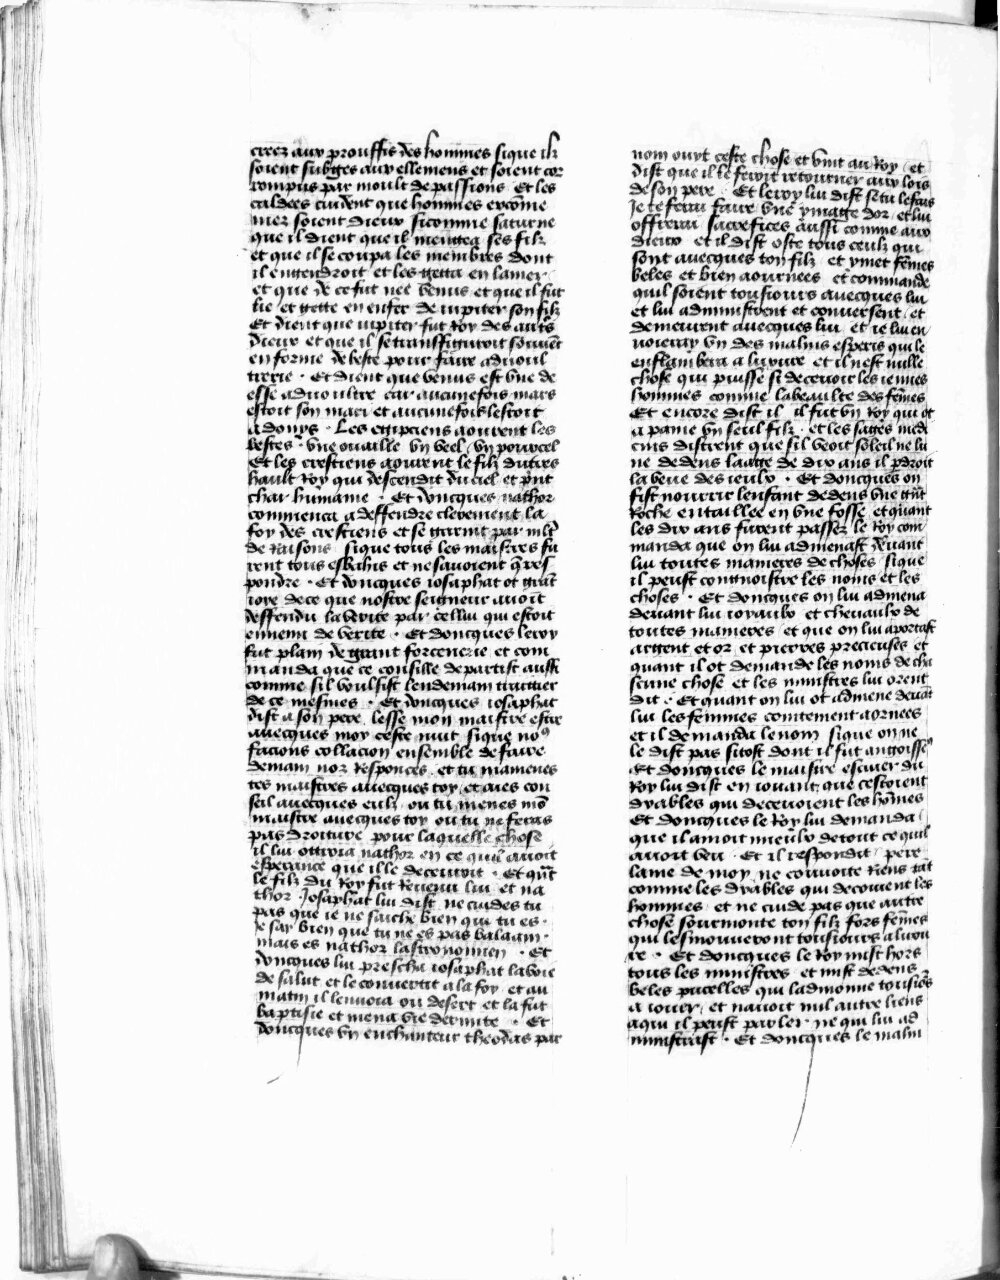 creez aux prouffis des hommes sique ilz
soient subges aux ellemens et soient cor
rompus par moult de passions Et les
caldees cuident que hommes excōme
niez soient dieux sicomme saturne
que il dient que il menga ses filz
et que il se coupa les membres dont
il engendroit et les getta en la mer
et que de ce fut nee venus et que il fut
lie et gette en enfer de iupiter son filz
Et dient que iupiter fut Roy des autres
dieux et que il se transfiguroit souuēt
en forme de beste pour faire aduoul
trerie . Et dient que venus est vne de
esse aduoultre car aucunefois mars
estoit son mari et aucunefois lestoit
adonys . Les egipciens aourent les
bestes . vne ouaille vn veel vn pourcel
Et les crestiens aourent le filz du tres
hault Roy qui descendit du ciel et print
char humaine . Et doncques nathor
commenca a deffendre clerement la
foy des crestiens et se garnit par mlt
de Raisons sique tous les maistres fu
rent tous esbahis et ne sauoient q̄ res
pondre . Et doncques iosaphat ot grāt
ioye de ce que nostre seigneur auoit
deffendu la verite par cellui qui estoit
ennemi de verite . Et doncques le roy
fut plain de grant forcenerie et com
manda que ce consille departist aussi
comme sil voulsist lendemain traictier
de ce mesmes . Et doncques iosaphat
dist a son pere lesse mon maistre estre
auecques moy ceste nuit sique no9
facions collacion ensemble de faire
demain noz Responces et tu mamenes
tes maistres auecques toy et aies con
seil auecques eulx ou tu menes mō
maistre auecques toy ou tu ne feras
pas droiture pour laquelle chose
il lui ottroia nathor en ce quil auoit
esperance que il le deceuroit . Et quāt
le filz du Roy fut Reuenu lui et na
thor Josaphat lui dist ne cuides tu
pas que ie ne saiche bien qui tu es .
Je say bien que tu ne es pas balaam .
mais es nathor lastronomien . Et
doncques lui prescha iosaphat la voie
de salut et le conuertit a la foy et au
matin il lenuoia ou desert et la fut
baptisie et mena vie dermite . Et
doncques vn enchanteur theodas par
nom ouyt ceste chose et vint au Roy et
dist que il le feroit retourner aux lois
de son pere . Et le roy lui dist se tu le fais
Je te feray faire vne ymage dor et lui
offreray sacrefices aussi comme aux
dieux et il dist oste tous ceulx qui
sont auecques ton filz et y met fēmes
beles et bien aournees et commande
quil soient tousiours auecques lui
et lui administrent et conuersent et
demeurent auecques lui et ie lui en
uoieray vn des malins esperis qui le
enflambera a luxure et il nest nulle
chose qui puisse si deceuoir les iennes
hommes comme la beaulte des fēmes
Et encore dist il il fut vn Roy qui ot
a paine vn seul filz . et les sages medi
cins distrent que sil veoit soleil ne lu
ne dedens laage de dix ans il pdroit
la veue des ieulx . Et doncques on
fist nourrir lenfant dedens vne grāt
Roche entaillee en vne fosse et quant
les dix ans furent passez le Roy com
manda que on lui admenast deuant
lui toutes manieres de choses sique
il peust congnoistre les noms et les
choses . Et doncques on lui admena
deuant lui ioyaulx et cheuaulx de
toutes manieres et que on lui aportast
argent et or et pierres precieuses et
quant il ot demande les noms de cha
scune chose et les ministres lui orent
dit . Et quant on lui ot admene deuāt
lui les femmes cointement aornees
et il demanda le nom sique on ne
le dist pas sitost dont il fut angoisse9
Et doncques le maistre escuier du
Roy lui dist en iouant que cestoient
dyables qui deceuoient les hōmes
Et doncques le Roy lui demanda
que il amoit mieulx de tout ce quil
auoit veu . Et il respondit pere
lame de moy ne conuoite Riens tāt
comme les dyables qui decoiuent les
hommes et ne cuide pas que autre
chose sourmonte ton filz fors fēmes
qui lesmouueront tousiours a luxu
re . Et doncques le Roy mist hors
tous les ministres et mist dedens
beles pucelles qui ladmonnestoient tousio9s
a iouer et nauoit nul autre liens
a qui il peust parler ne qui lui ad
ministrast . Et doncques le malin